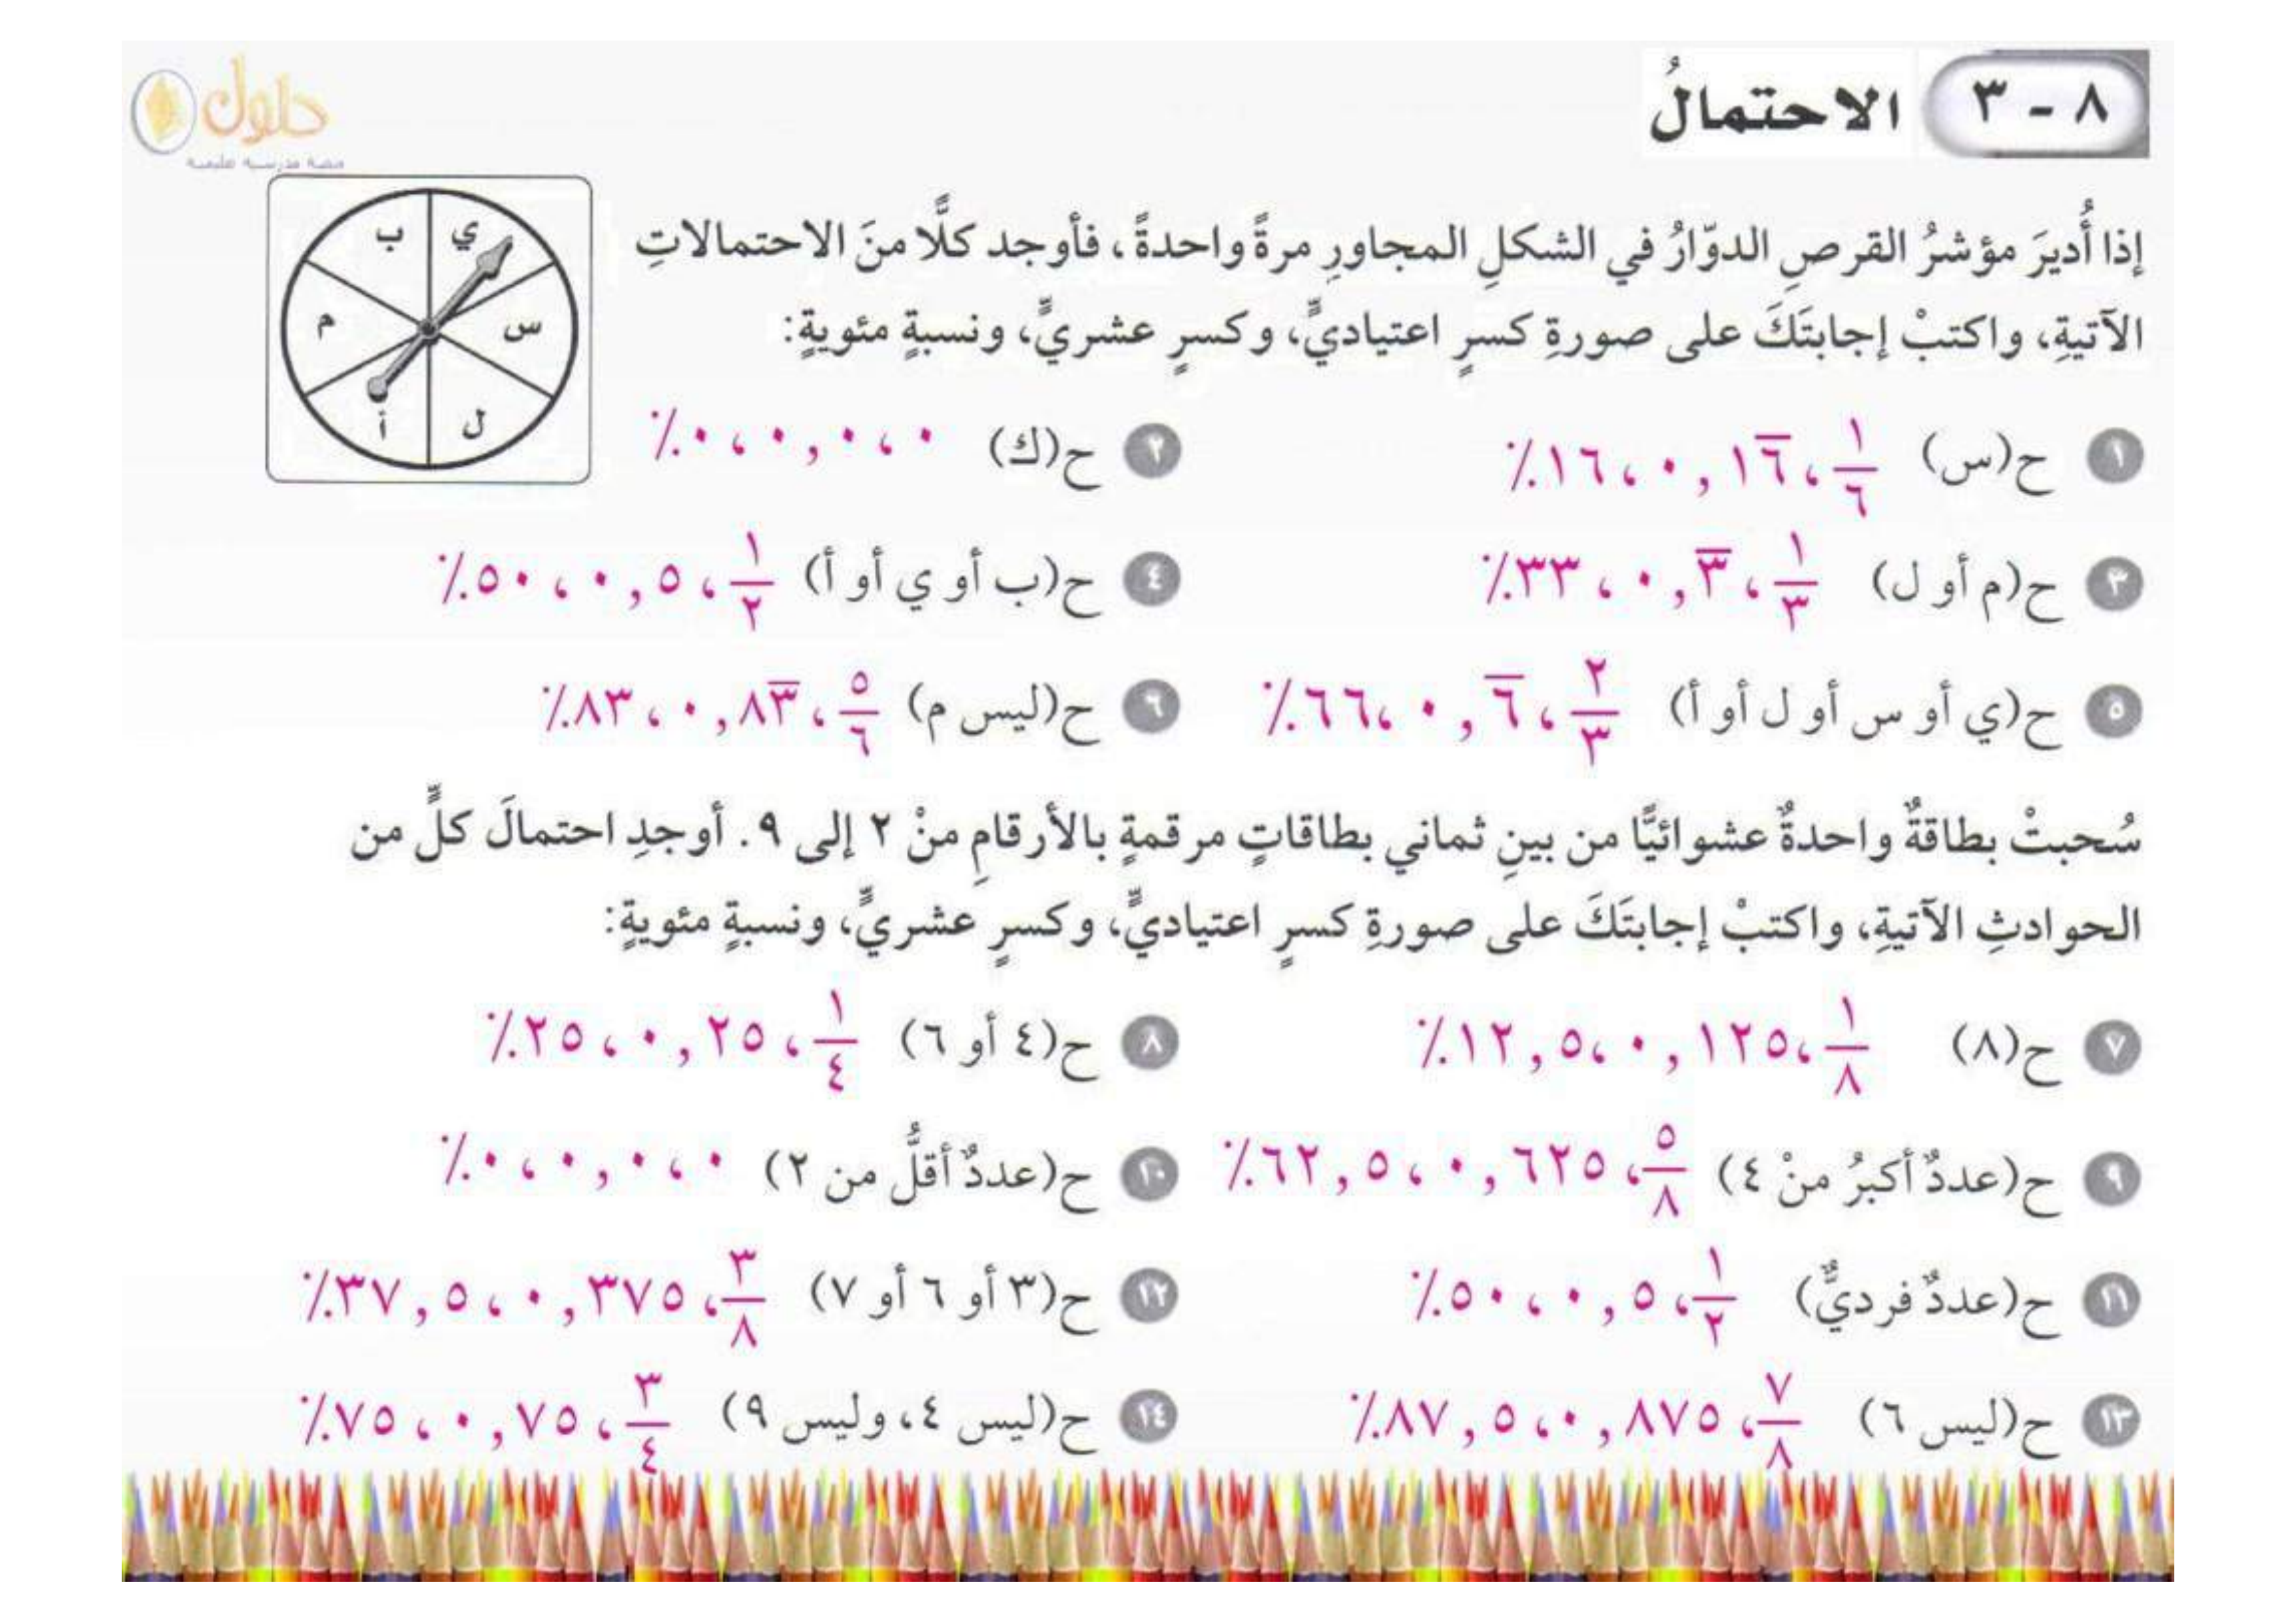 ٨ - ٣ الاحتمالُ
حلول
منصة مدرسية تعليمية
إذا أُديرَ مؤشرُ القرصِ الدوّارُ في الشكلِ المجاورِ مرةً واحدةً، فأوجد كلًّا منَ الاحتمالاتِ
الآتيةِ، واكتبْ إجابتَكَ على صورةِ كسرٍ اعتياديٍّ، وكسرٍ عشريٍّ، ونسبةٍ مئويةٍ:
ي
ب
س
م
ل
أ
١ ح(س) ١/٦، ٠,١٦̅، ١٦٪
٢ ح(ك) ٠، ٠,٠، ٠٪
٣ ح(م أو ل) ١/٣، ٠,٣̅، ٣٣٪
٤ ح(ب أو ي أو أ) ١/٢، ٠,٥، ٥٠٪
٥ ح(ي أو س أو ل أو أ) ٢/٣، ٠,٦̅، ٦٦٪
٦ ح(ليس م) ٥/٦، ٠,٨٣̅، ٨٣٪
سُحبتْ بطاقةٌ واحدةٌ عشوائيًّا من بينِ ثماني بطاقاتٍ مرقمةٍ بالأرقامِ منْ ٢ إلى ٩. أوجدِ احتمالَ كلٍّ من
الحوادثِ الآتيةِ، واكتبْ إجابتَكَ على صورةِ كسرٍ اعتياديٍّ، وكسرٍ عشريٍّ، ونسبةٍ مئويةٍ:
٧ ح(٨) ١/٨، ٠,١٢٥، ١٢,٥٪
٨ ح(٤ أو ٦) ١/٤، ٠,٢٥، ٢٥٪
٩ ح(عددٌ أكبرُ منْ ٤) ٥/٨، ٠,٦٢٥، ٦٢,٥٪
١٠ ح(عددٌ أقلُّ من ٢) ٠، ٠,٠، ٠٪
١١ ح(عددٌ فرديٌّ) ١/٢، ٠,٥، ٥٠٪
١٢ ح(٣ أو ٦ أو ٧) ٣/٨، ٠,٣٧٥، ٣٧,٥٪
١٣ ح(ليس ٦) ٧/٨، ٠,٨٧٥، ٨٧,٥٪
١٤ ح(ليس ٤، وليس ٩) ٣/٤، ٠,٧٥، ٧٥٪